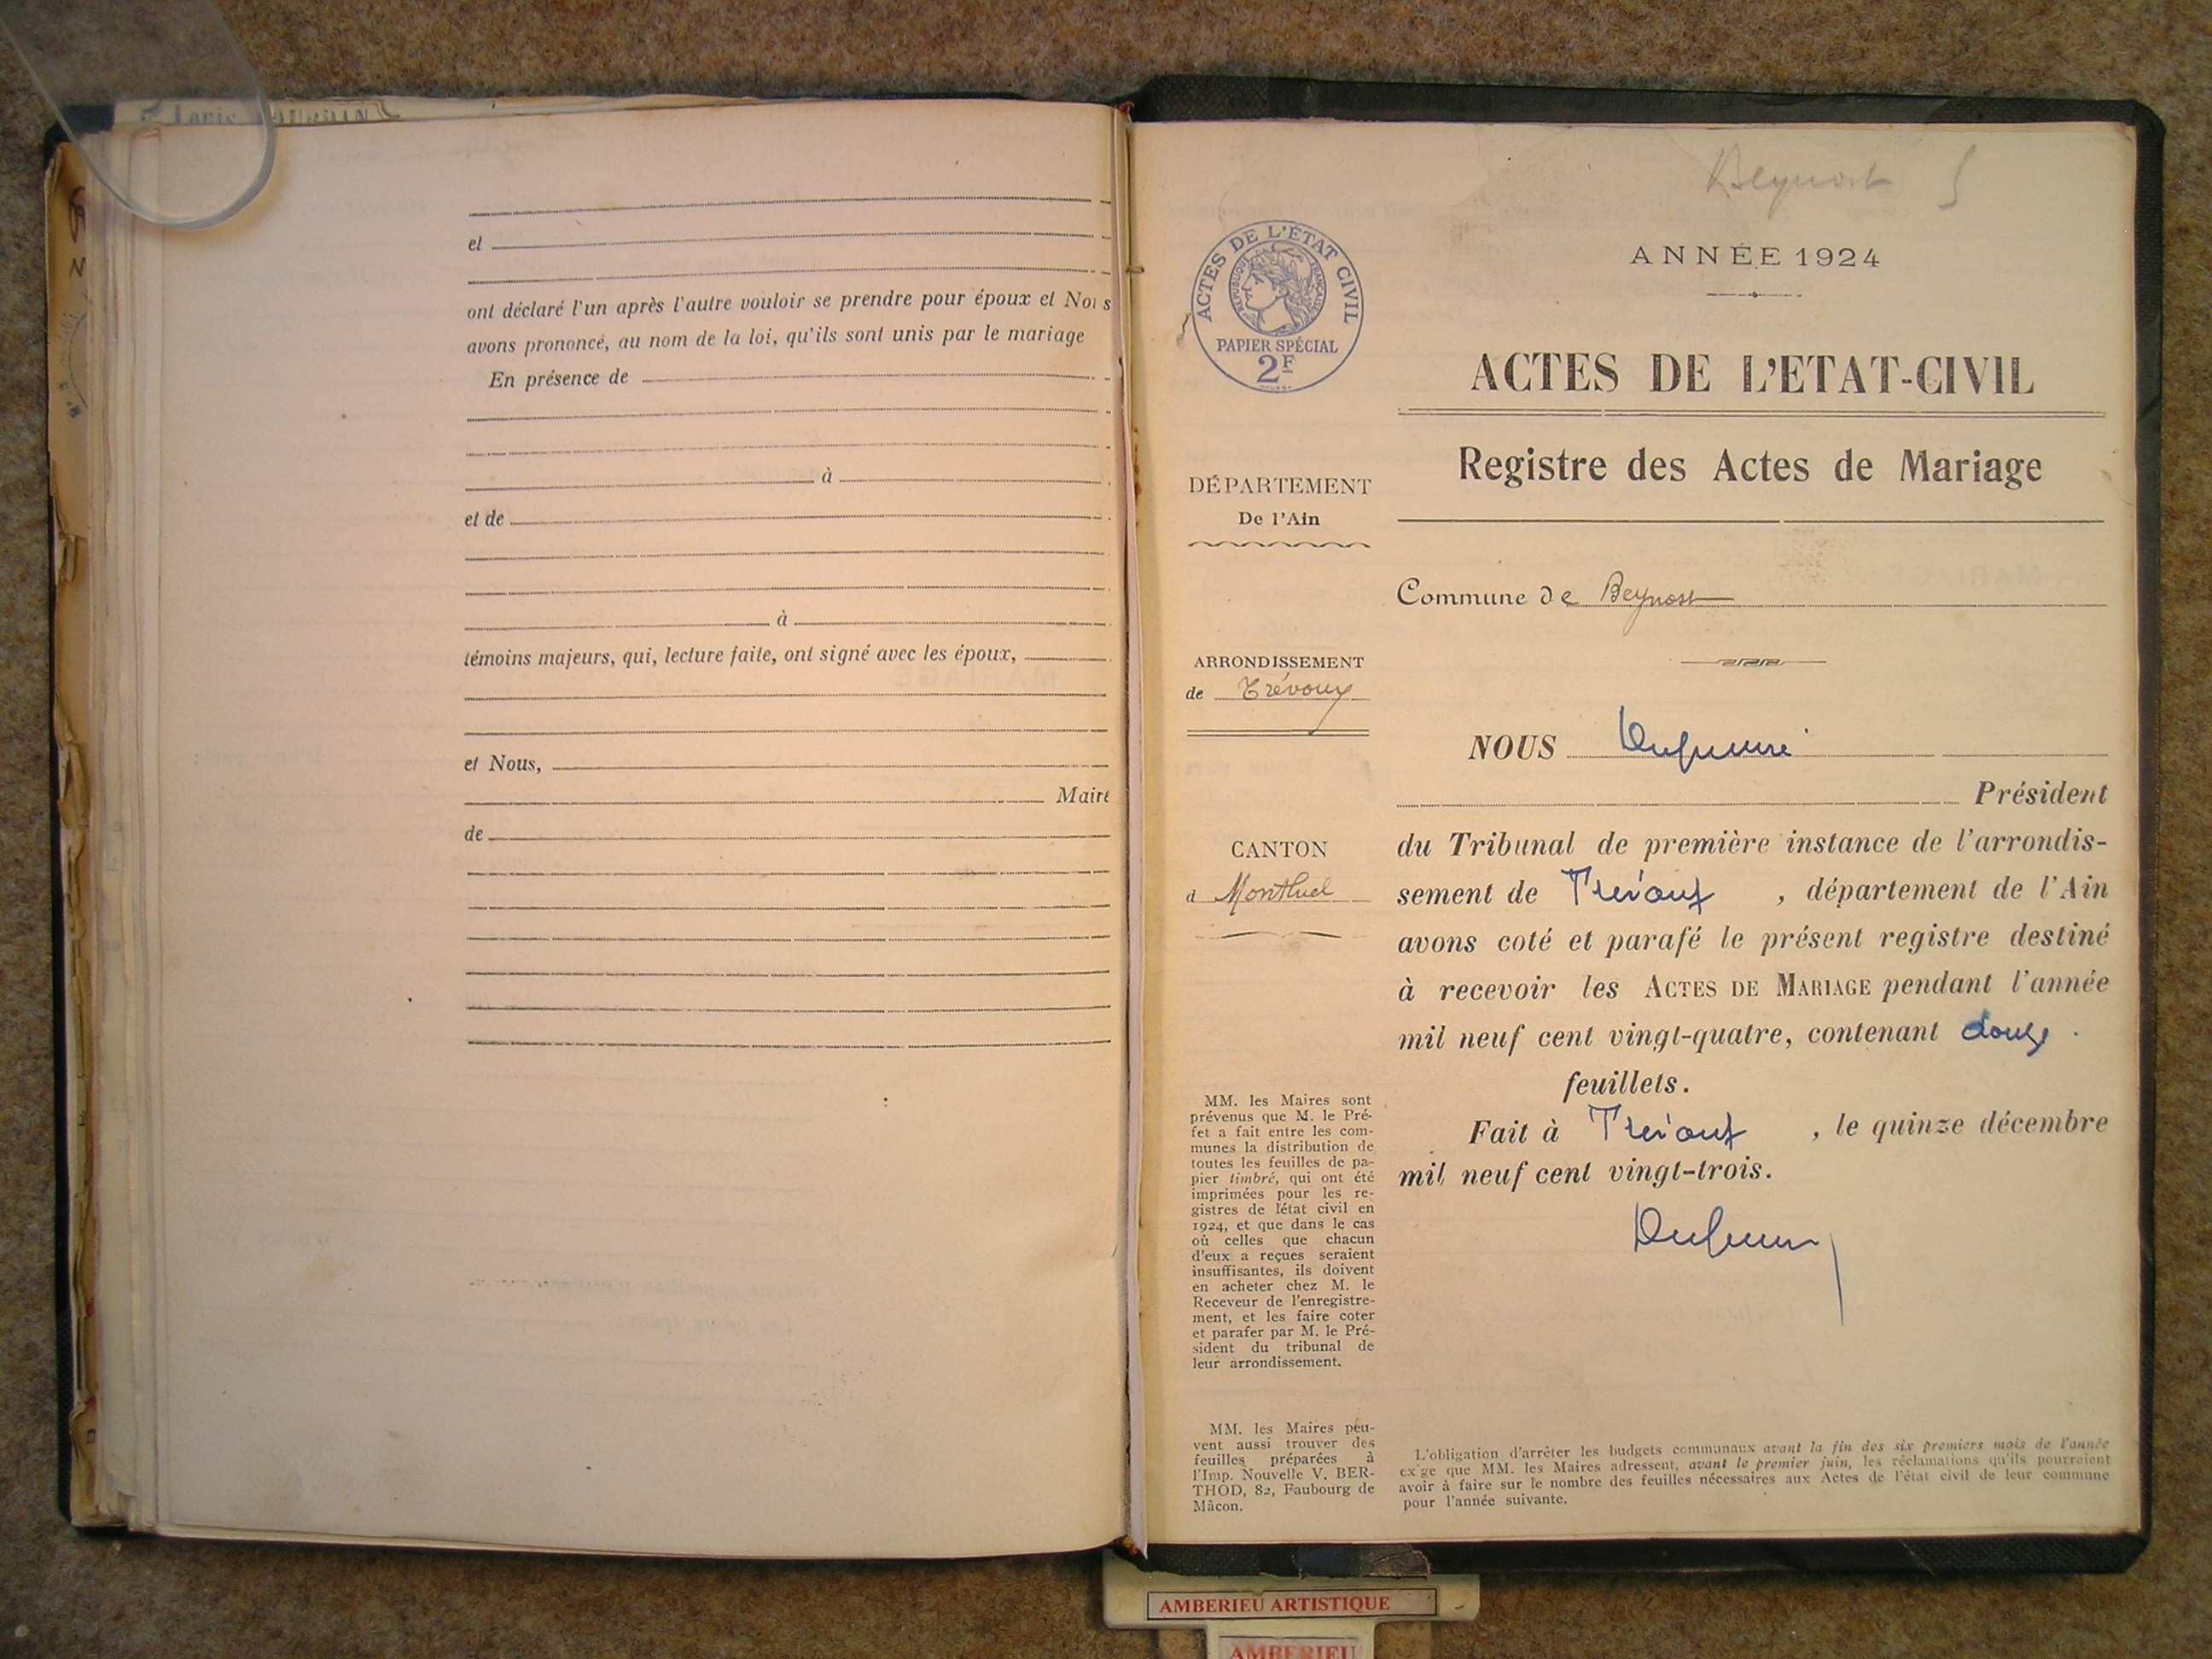 et
ont déclaré l'un après l'autre vouloir se prendre pour époux et Nous
avons prononcé, au nom de la loi, qu'ils sont unis par le mariage
En présence de
à
et de
à
témoins majeurs, qui, lecture faite, ont signé avec les époux,
et Nous,
Maire
de
Beynost
ANNÉE 1924
ACTES DE L'ÉTAT CIVIL
RÉPUBLIQUE FRANÇAISE
PAPIER SPÉCIAL
2F
ACTES DE L'ETAT-CIVIL
Registre des Actes de Mariage
DÉPARTEMENT
De l'Ain
Commune de Beynost
ARRONDISSEMENT
de Trévoux
CANTON
d Montluel
NOUS
Président
du Tribunal de première instance de l'arrondis-
sement de Trévoux , département de l'Ain
avons coté et parafé le présent registre destiné
à recevoir les ACTES DE MARIAGE pendant l'année
mil neuf cent vingt-quatre, contenant douze
feuillets.
Fait à Trévoux , le quinze décembre
mil neuf cent vingt-trois.
MM. les Maires sont
prévenus que M. le Pré-
fet a fait entre les com-
munes la distribution de
toutes les feuilles de pa-
pier timbré, qui ont été
imprimées pour les re-
gistres de l'état civil en
1924, et que dans le cas
où celles que chacun
d'eux a reçues seraient
insuffisantes, ils doivent
en acheter chez M. le
Receveur de l'enregistre-
ment, et les faire coter
et parafer par M. le Pré-
sident du tribunal de
leur arrondissement.
MM. les Maires peu-
vent aussi trouver des
feuilles préparées à
l'Imp. Nouvelle V. BER-
THOD, 82, Faubourg de
Mâcon.
L'obligation d'arrêter les budgets communaux avant la fin des six premiers mois de l'année
exige que MM. les Maires adressent, avant le premier juin, les réclamations qu'ils pourraient
avoir à faire sur le nombre des feuilles nécessaires aux Actes de l'état civil de leur commune
pour l'année suivante.
AMBERIEU ARTISTIQUE
AMBERIEU